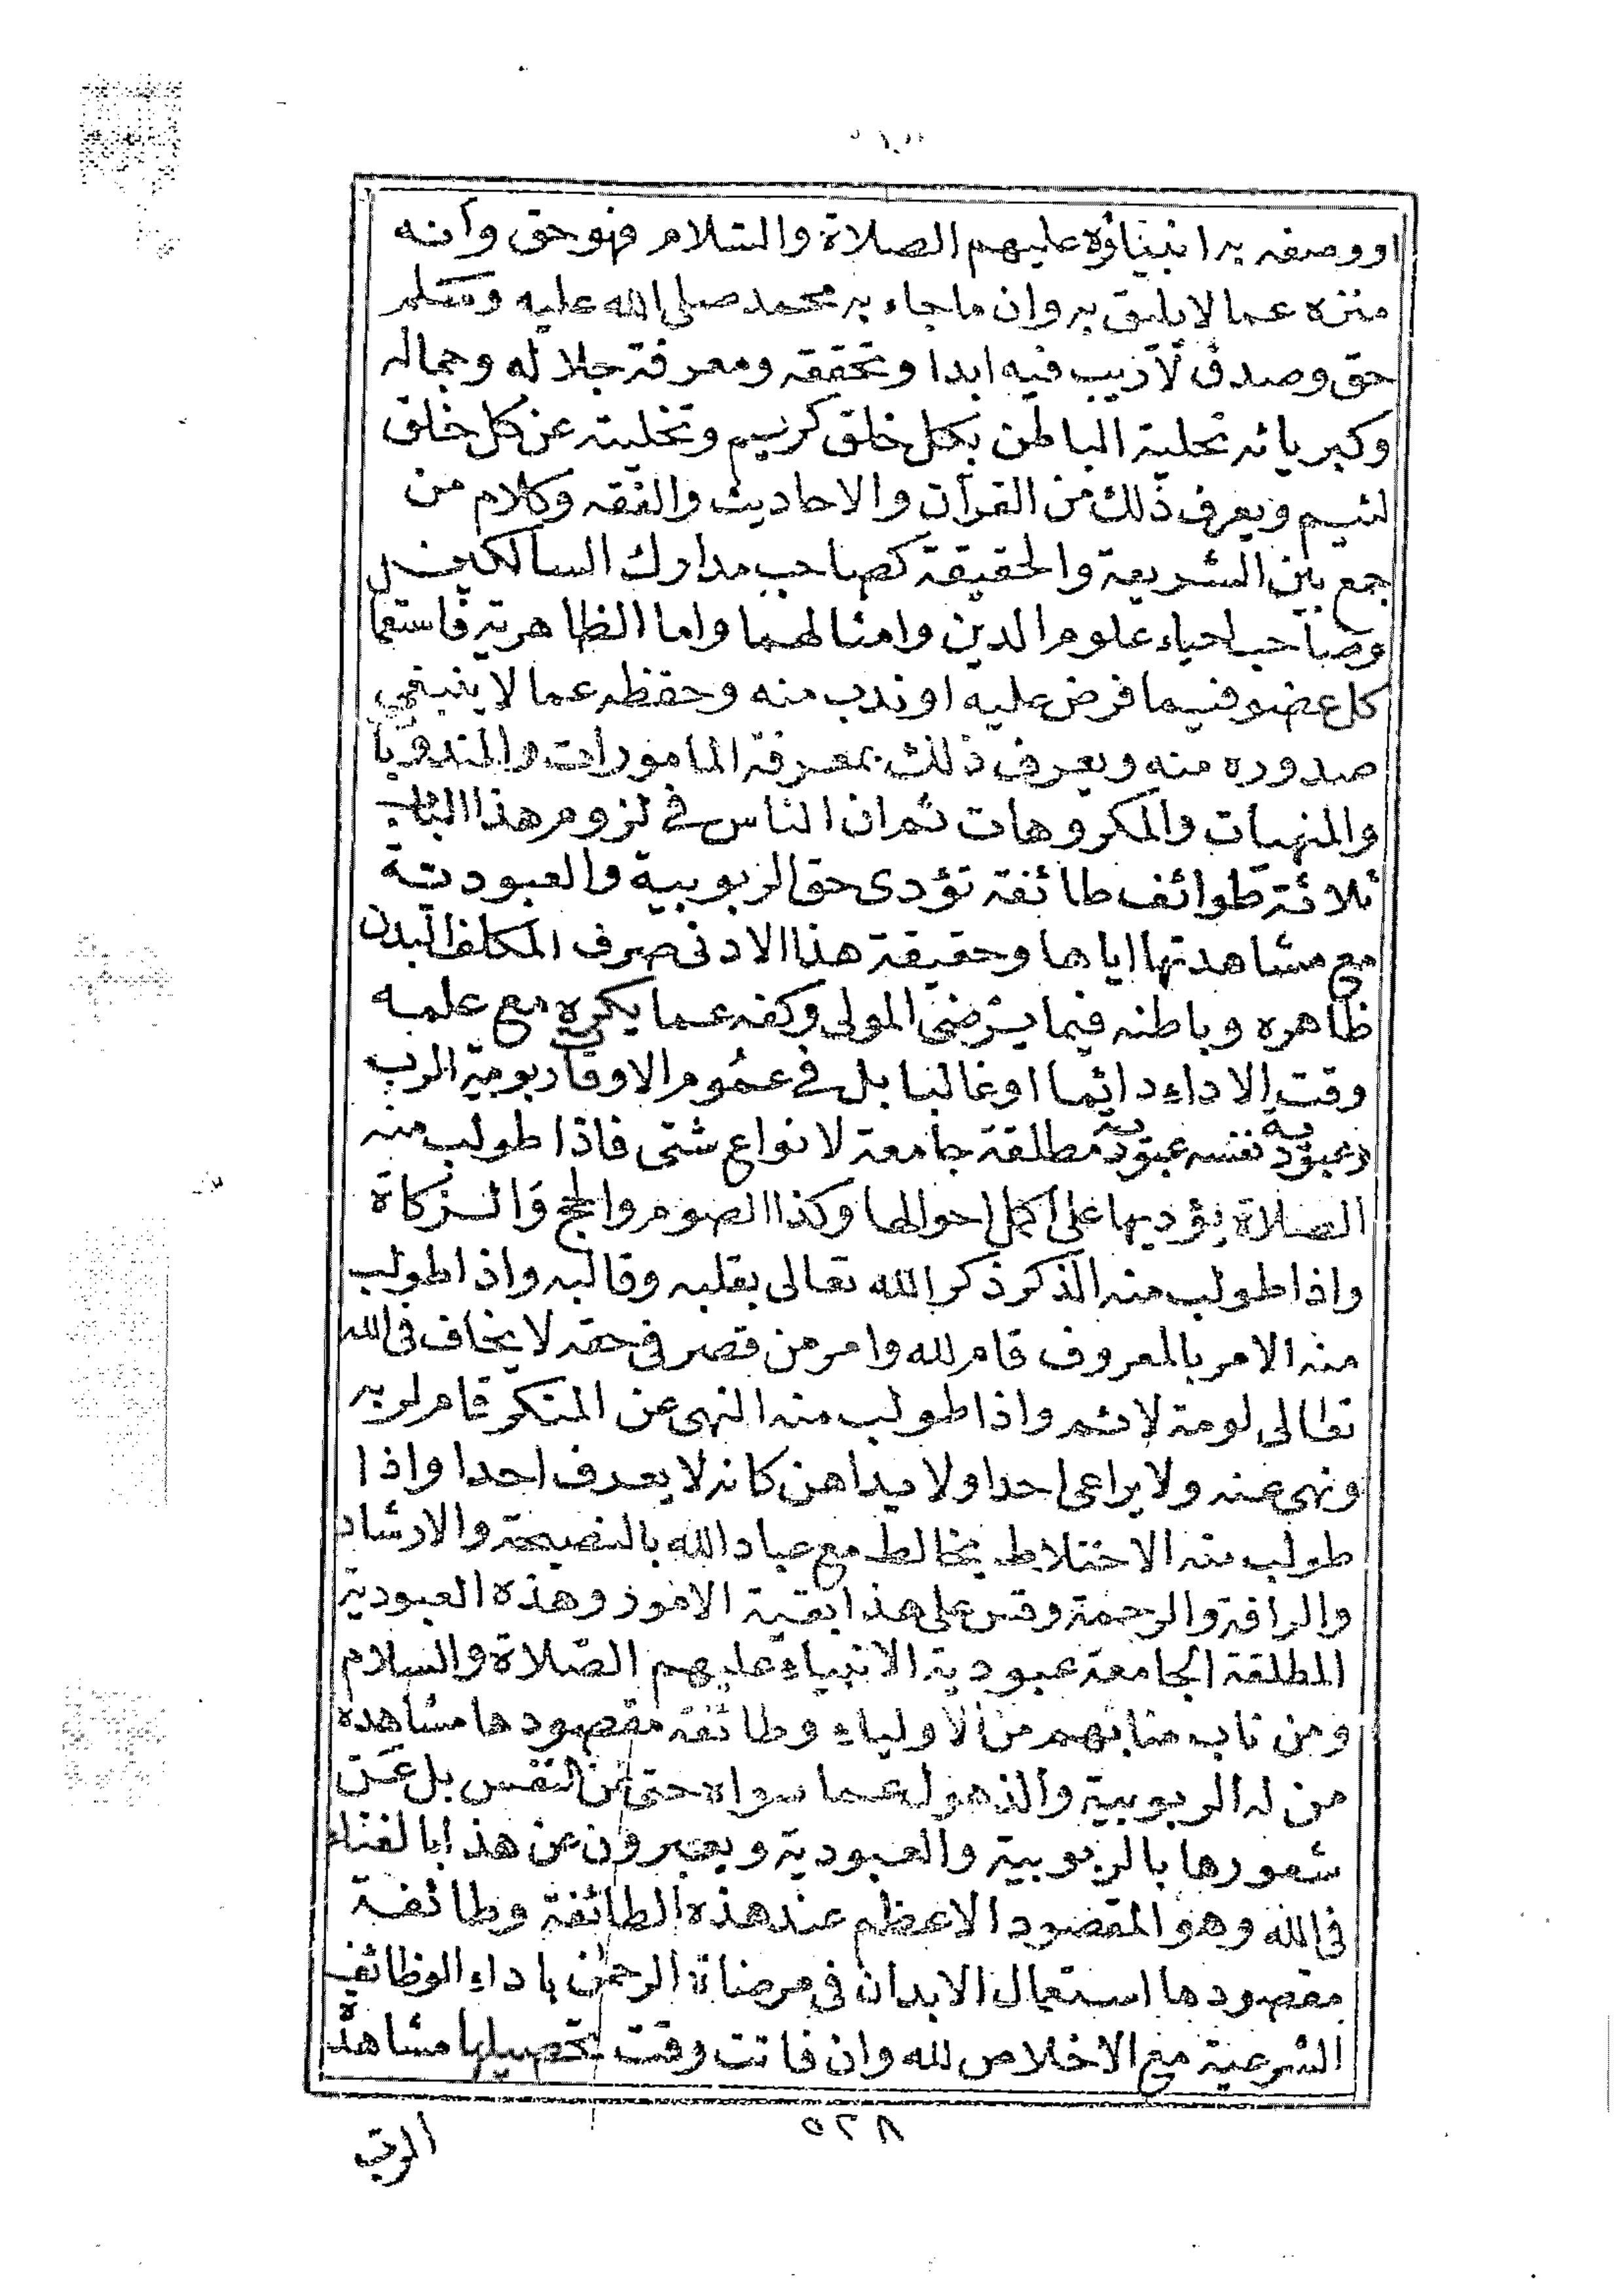 او وصفه به انبياؤه عليهم الصلاة والسّلام فهو حق وأنه
منزه عما لا يليق به وان ما جاء به محمد صلى الله عليه وسلم
حق وصدق لا ريب فيه ابدا وتحققه ومعرفة جلاله وجماله
وكبريائه تحلية الباطن بكل خلق كريم وتخليته عن كل خلق
لئيم ويعرف ذلك من القرآن والاحاديث والفقه وكلام من
جمع بين الشريعة والحقيقة كصاحب مدارك السالكين
وصاحب احياء علوم الدين وامثالهما واما الظاهرية فاستعما
كل عضو فيما فرض عليه او ندب منه وحفظه عما لا ينبغي
صدوره منه ويعرف ذلك بمعرفة المامورات والمندوبا
والمنهيات والمكروهات ثم ان الناس في لزوم هذا الباب
ثلاثة طوائف طائفة تؤدى حق الربوبية والعبودية
مع مشاهدتها اياها وحقيقة هذا الادنى صرف المكلف البدن
ظاهره وباطنه فيما يرضى المولى وكفه عما يكره مع علمه
وقت الاداء دائما او غالبا بل في عموم الاوقا ربوبية الرب
وعبودية نفسه عبودية مطلقة جامعة لانواع شتى فاذا طولب منه
الصلاة يؤديها على اكمل احوالها وكذا الصوم والحج والزكاة
واذا طولب منه الذكر ذكر الله تعالى بقلبه وقالبه واذا طولب
منه الامر بالمعروف قام لله وامر من قصر في حقه لا يخاف فى الله
تعالى لومة لائم واذا طولب منه النهى عن المنكر قام لربه
ونهى عنه ولا يراعى احدا ولا يداهن كانه لا يعرف احدا واذا
طولب منه الاختلاط يخالط مع عباد الله بالنصيحة والارشاد
والرافة والرحمة وقس على هذا بقية الامور وهذه العبودية
المطلقة الجامعة عبودية الانبياء عليهم الصّلاة والسلام
ومن ناب منابهم من الاولياء وطائفة مقصودها مشاهدة
من له الربوبية والذهول عما سواه حتى عن النفس بل عن
شعورها بالربوبية والعبودية ويعبرون عن هذا بالفناء
فى الله وهو المقصود الاعظم عند هذه الطائفة وطائفة
مقصودها استعمال الابدان فى مرضاة الرحمن باداء الوظائف
الشرعية مع الاخلاص لله وان فاتت وقت تحصيلها مشاهدة
٥٢٨
الرب